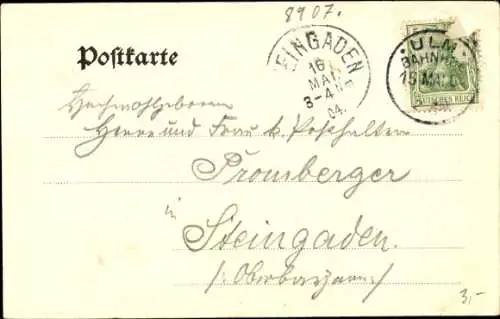 8907.
Postkarte
STEINGADEN
16
MAI
3-4 N
04.
ULM
BAHNHOF
15 MAI
DEUTSCHES REICH
Hochwohlgeboren
Herrn und Frau k. Posthalter
Promberger
in
Steingaden.
/: Oberbayern :/
3,-